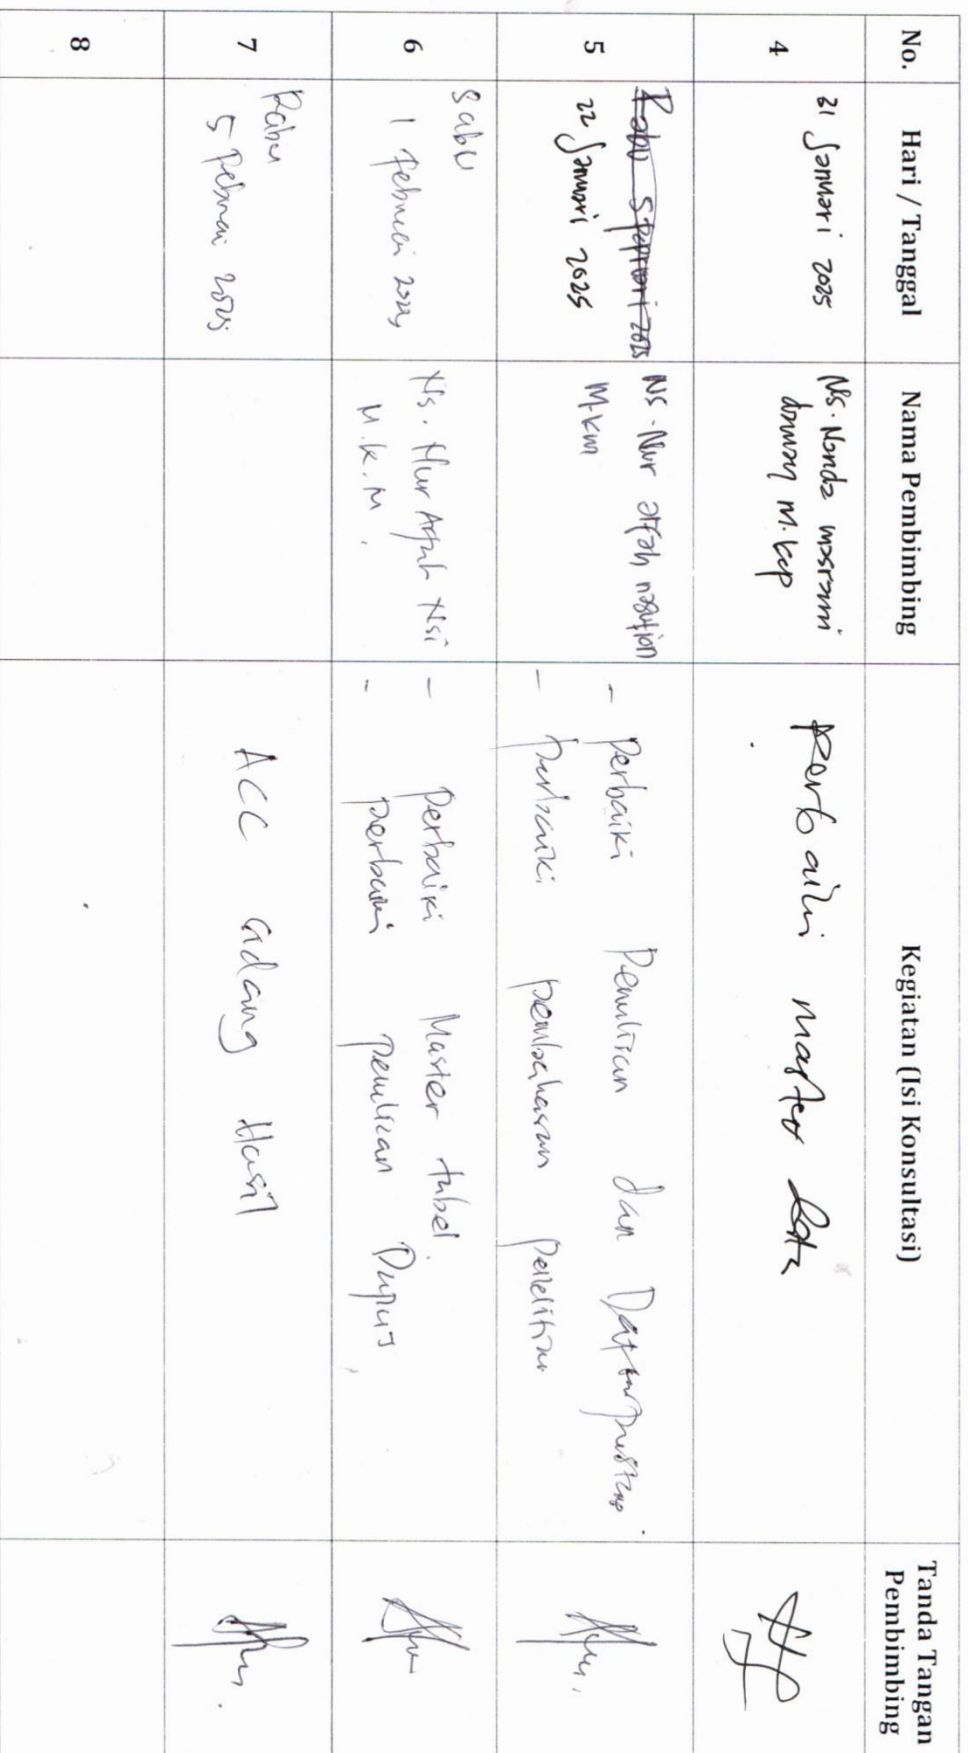 No.
Hari / Tanggal
Nama Pembimbing
Kegiatan (Isi Konsultasi)
Tanda Tangan
Pembimbing
4
21 Januari 2025
Ns. Nanda masraini
daulay M.kep
Perbaiki master data
5
Rabu 5 Februari 2025
22 Januari 2025
Ns. Nur arfah nasution
M.km
- Perbaiki Penulisan dan Daftar Pustaka
- Perbaiki pembahasan penelitian
6
Sabtu
1 Februari 2025
Ns. Nur Arfah Nst
M.K.M
- Perbaiki Master tabel
- perbaiki penulisan Dapus
7
Rabu
5 Februari 2025
ACC Sidang Hasil
8